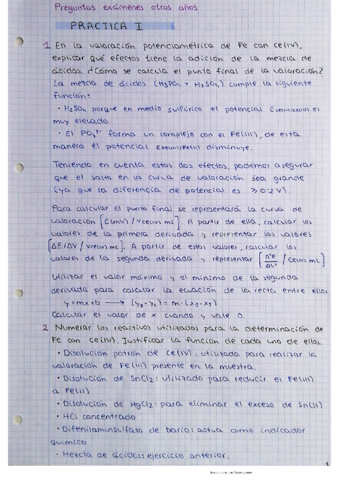 Preguntas exámenes otros años
PRACTICA I
1. En la valoración potenciométrica de Fe con Ce(IV),
explicar qué efectos tiene la adición de la mezcla de
ácidos. ¿Cómo se calcula el punto final de la valoración?
La mezcla de ácidos (H3PO4 + H2SO4) cumple la siguiente
función:
• H2SO4 porque en medio sulfúrico el potencial E es
muy elevado.
• El PO4³⁻ forma un complejo con el Fe(III), de esta
manera el potencial EFe(III)/Fe(II) disminuye.
Teniendo en cuenta estos dos efectos, podemos asegurar
que el salto en la curva de valoración sea grande
(ya que la diferencia de potencial es ≥ 0'2 V).
Para calcular el punto final se representará la curva de
valoración [E(mV) / VCe(IV) mL]. A partir de ella, calcular los
valores de la primera derivada y representar los valores
[ΔE/ΔV / VCe(IV) mL]. A partir de estos valores, calcular los
valores de la segunda derivada y representar [Δ²E/ΔV² / Ce(IV) mL]
Utilizar el valor máximo y el mínimo de la segunda
derivada para calcular la ecuación de la recta entre ellos
y = mx + b → (y2-y1) = m·(x2-x1)
Calcular el valor de x cuando y vale 0.
2. Numerar los reactivos utilizados para la determinación de
Fe con Ce(IV). Justificar la función de cada uno de ellos.
• Disolución patrón de Ce(IV): utilizada para realizar la
valoración de Fe(II) presente en la muestra.
• Disolución de SnCl2: utilizada para reducir el Fe(III)
a Fe(II).
• Disolución de HgCl2: para eliminar el exceso de Sn(II)
• HCl concentrado
• Difenilaminsulfato de bario: actúa como indicador
químico
• Mezcla de ácidos: ejercicio anterior.
1